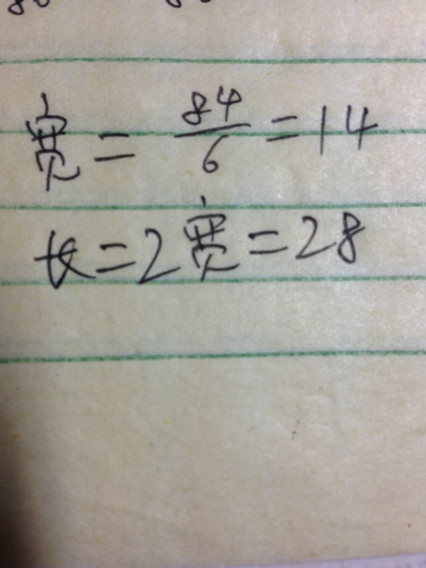 宽=84/6=14
长=2宽=28